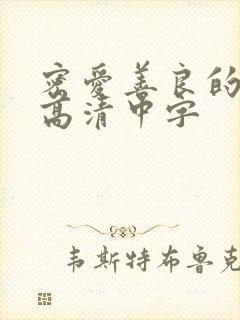 密爱善良的
高清中字
韦斯特布鲁克